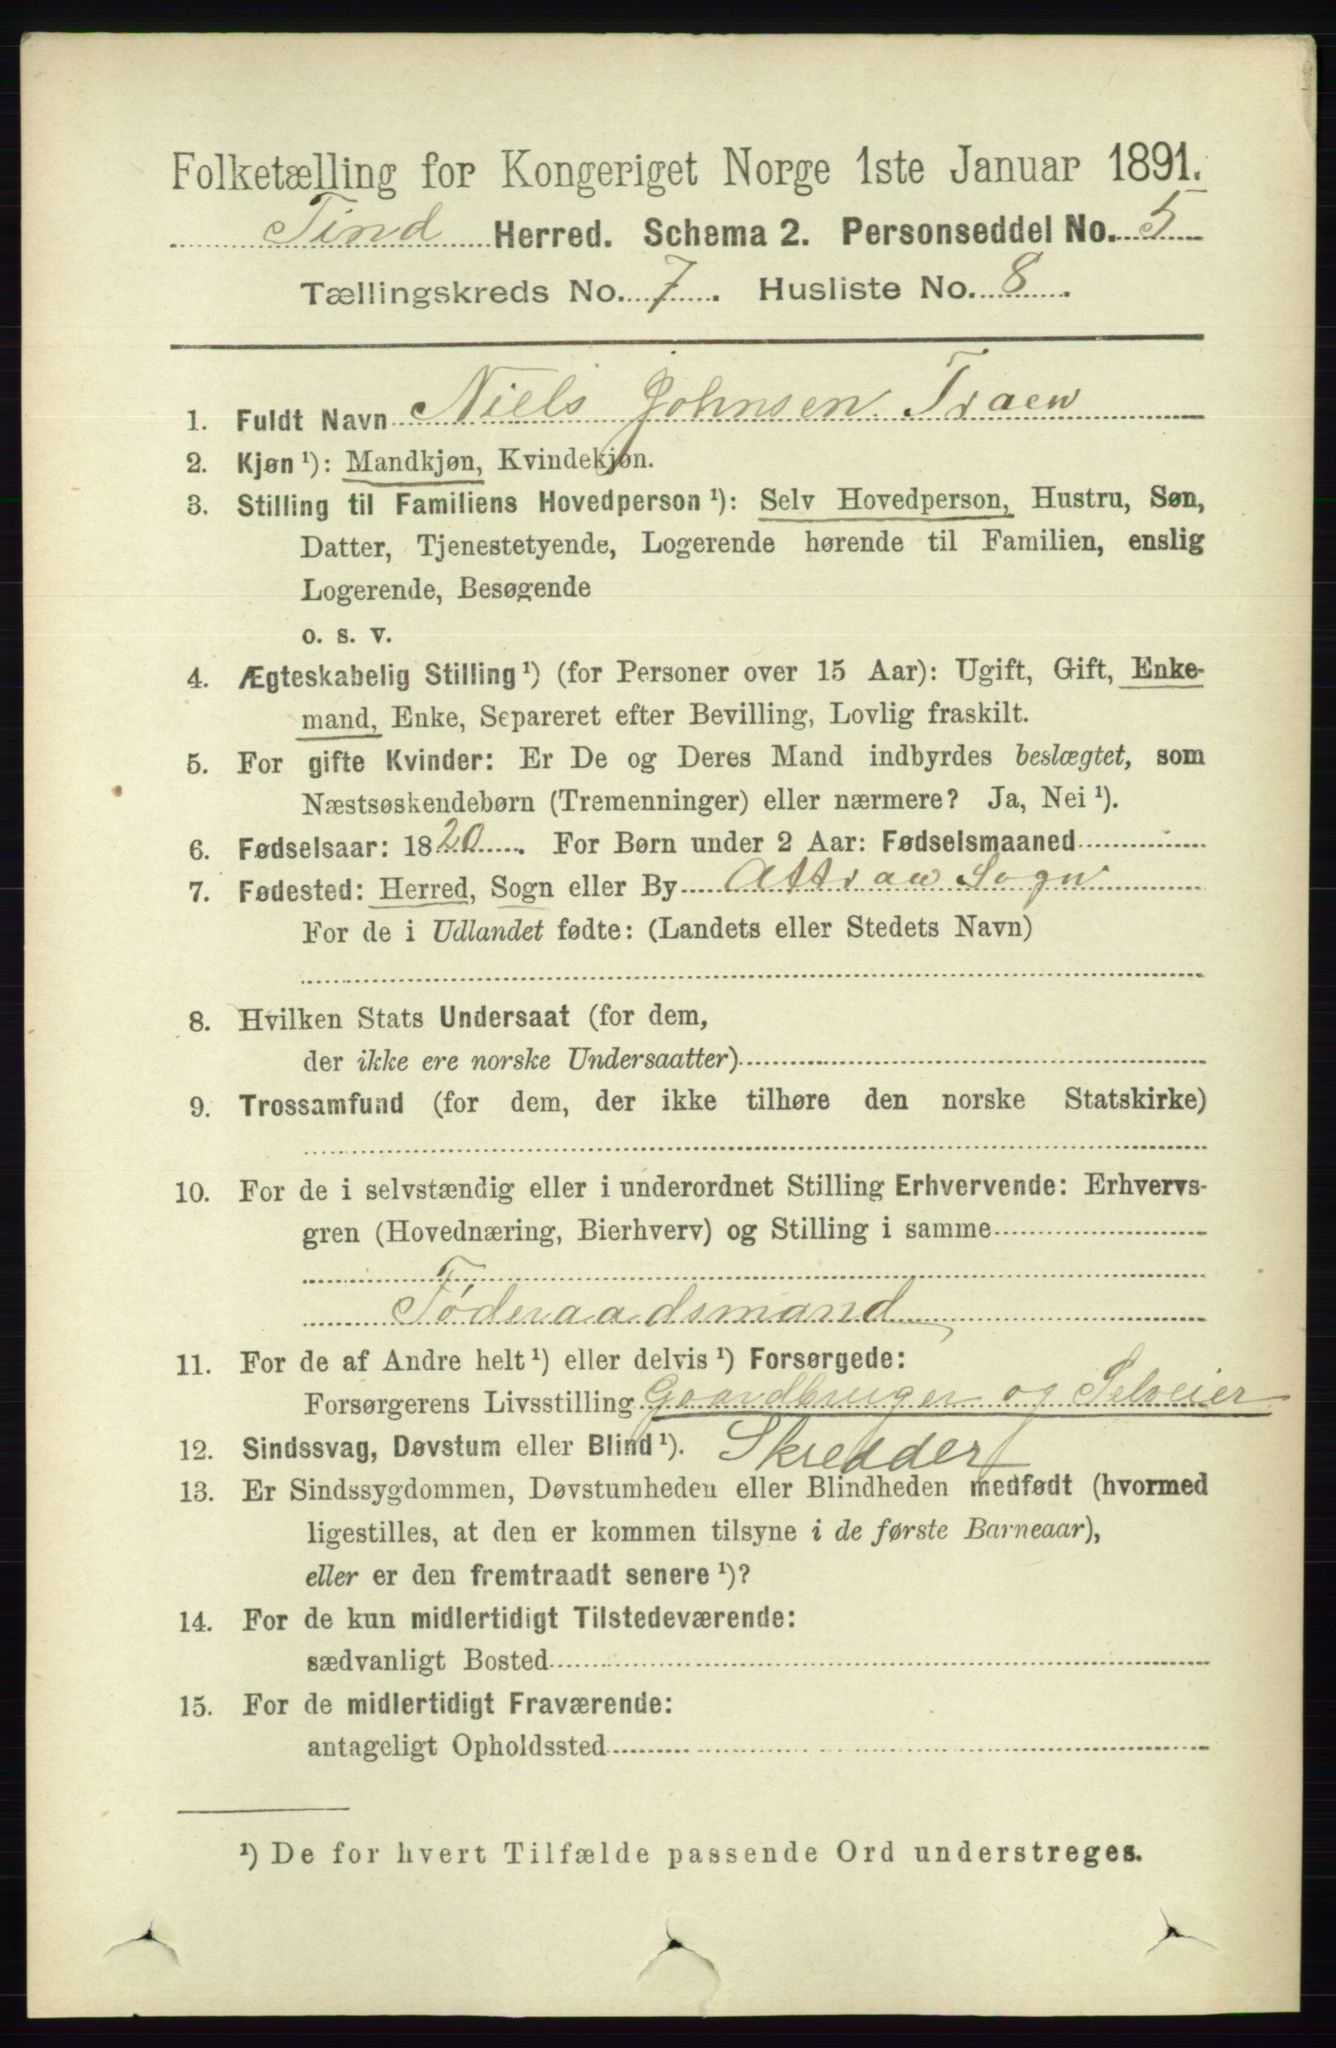 Folketælling for Kongeriget Norge 1ste Januar 1891.
Tind Herred. Schema 2. Personseddel No. 5
Tællingskreds No. 7. Husliste No. 8.
1. Fuldt Navn Niels Johnsen Traen
2. Kjøn ¹): Mandkjøn, Kvindekjøn.
3. Stilling til Familiens Hovedperson ¹): Selv Hovedperson, Hustru, Søn,
Datter, Tjenestetyende, Logerende hørende til Familien, enslig
Logerende, Besøgende
o. s. v.
4. Ægteskabelig Stilling ¹) (for Personer over 15 Aar): Ugift, Gift, Enke-
mand, Enke, Separeret efter Bevilling, Lovlig fraskilt.
5. For gifte Kvinder: Er De og Deres Mand indbyrdes beslægtet, som
Næstsøskendebørn (Tremenninger) eller nærmere? Ja, Nei ¹).
6. Fødselsaar: 1820. For Børn under 2 Aar: Fødselsmaaned
7. Fødested: Herred, Sogn eller By Attraa Sogn
For de i Udlandet fødte: (Landets eller Stedets Navn)
8. Hvilken Stats Undersaat (for dem,
der ikke ere norske Undersaatter)
9. Trossamfund (for dem, der ikke tilhøre den norske Statskirke)
10. For de i selvstændig eller i underordnet Stilling Erhvervende: Erhvervs-
gren (Hovednæring, Bierhverv) og Stilling i samme
Føderaadsmand
11. For de af Andre helt ¹) eller delvis ¹) Forsørgede:
Forsørgerens Livsstilling Gaardbruger og Selveier
12. Sindssvag, Døvstum eller Blind ¹). Skredder
13. Er Sindssygdommen, Døvstumheden eller Blindheden medfødt (hvormed
ligestilles, at den er kommen tilsyne i de første Barneaar),
eller er den fremtraadt senere ¹)?
14. For de kun midlertidigt Tilstedeværende:
sædvanligt Bosted
15. For de midlertidigt Fraværende:
antageligt Opholdssted
¹) De for hvert Tilfælde passende Ord understreges.